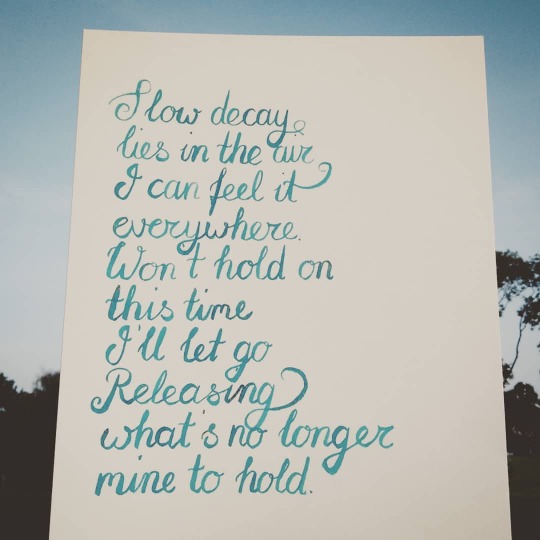 Slow decay
lies in the air
I can feel it
everywhere.
Won't hold on
this time
I'll let go
Releasing
what's no longer
mine to hold.